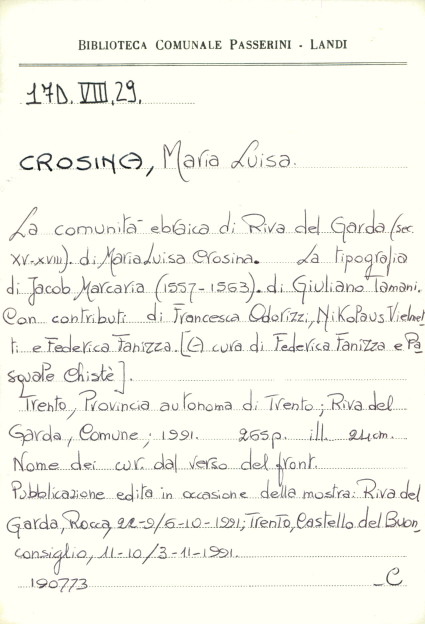 BIBLIOTECA COMUNALE PASSERINI - LANDI
17D. VIII. 29.
CROSINA, Maria Luisa.
La comunità ebraica di Riva del Garda (sec.
XV-XVIII). di Maria Luisa Crosina. La tipografia
di Jacob Marcaria (1557-1563). di Giuliano Tamani.
Con contributi di Francesca Odorizzi, Nikolaus Vielmet
ti e Federica Fanizza. [A cura di Federica Fanizza e Pa
squale Chistè].
Trento, Provincia autonoma di Trento; Riva del
Garda, Comune, 1991. 255p. ill. 24cm.
Nome dei cur. dal verso del front.
Pubblicazione edita in occasione della mostra: Riva del
Garda, Rocca, 22-9/6-10-1991; Trento, Castello del Buon
consiglio, 11-10/3-11-1991.
190773 _C